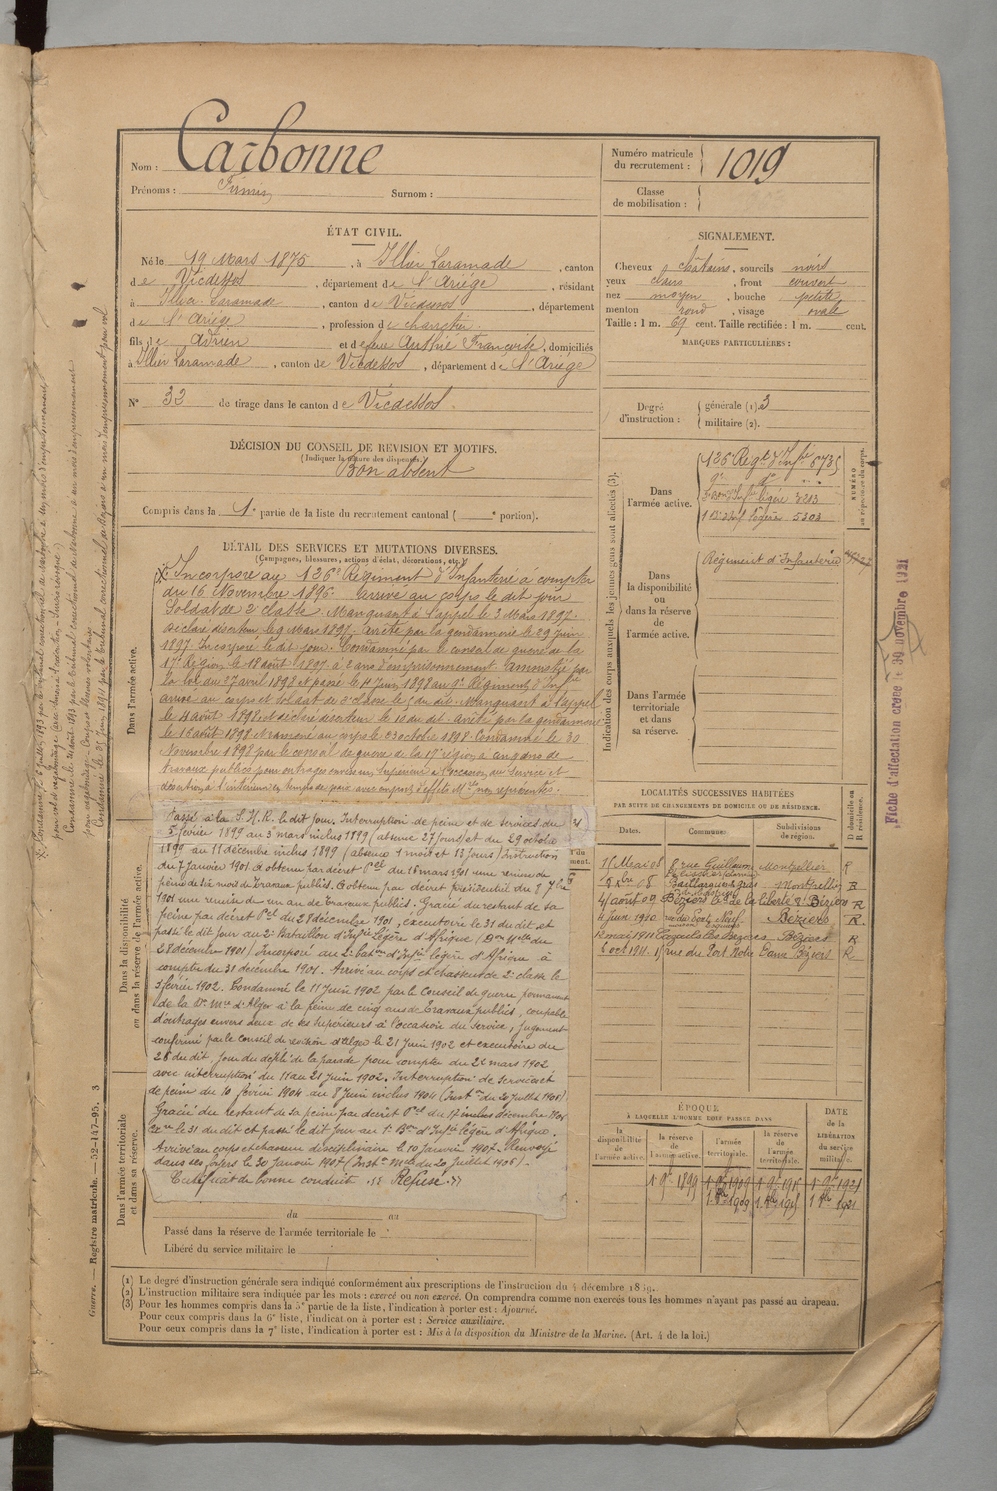 Nom : Carbonne
Prénoms : Firmin Surnom :
Numéro matricule du recrutement : 1019
Classe de mobilisation :
ÉTAT CIVIL.
Né le 19 Mars 1875, à Illier Laramade, canton
de Vicdessos, département de l'Ariège, résidant
à Illier-Laramade, canton de Vicdessos, département
de l'Ariège, profession de charretier.
fils de Adrien et de feue Authié Françoise, domiciliés
à Illier Laramade, canton de Vicdessos, département de l'Ariège
N° 33 de tirage dans le canton de Vicdessos.
SIGNALEMENT.
Cheveux châtains, sourcils noirs
yeux clairs, front couvert
nez moyen, bouche petite
menton rond, visage ovale
Taille : 1 m. 69 cent. Taille rectifiée : 1 m. cent.
MARQUES PARTICULIÈRES :
Degré d'instruction : générale (1) 3
militaire (2).
DÉCISION DU CONSEIL DE REVISION ET MOTIFS.
(Indiquer la nature des dispenses)
Bon absent
Compris dans la 1e partie de la liste du recrutement cantonal ( e portion).
Indication des corps auxquels les jeunes gens sont affectés (3).
NUMÉRO au répertoire du corps.
Dans l'armée active.
126 Régt d'Infie 5735
9e do
3e Bon d'Inf légère 7213
1 Bd d'Inf légère 5303
Dans la disponibilité ou dans la réserve de l'armée active.
Régiment d'Infanterie
Dans l'armée territoriale et dans sa réserve.
DÉTAIL DES SERVICES ET MUTATIONS DIVERSES.
(Campagnes, blessures, actions d'éclat, décorations, etc.)
Dans l'armée active.
Incorporé au 126e Régiment d'Infanterie à compter
du 16 Novembre 1896. Arrivé au corps le dit jour
Soldat de 2e classe. Manquant à l'appel le 3 Mars 1897.
Déclaré déserteur le 9 Mars 1897. Arrêté par la gendarmerie le 29 Juin
1897. Incorporé le dit jour. Condamné par le conseil de guerre de la
17e Région le 18 août 1897 à 2 ans d'emprisonnement. Amnistié par
la loi du 27 avril 1898 et passé le 4 Juin 1898 au 9e Régiment d'Infie
arrivé au corps et soldat de 2e classe le 5 du dit. Manquant à l'appel
le 4 août 1898 et déclaré déserteur le 10 du dit. Arrêté par la gendarmerie
le 16 août 1898 et ramené au corps le 23 octobre 1898. Condamné le 30
Novembre 1898 par le conseil de guerre de la 17e région à cinq ans de
travaux publics pour outrages envers un Supérieur à l'occasion du Service et
désertion à l'intérieur en temps de paix avec emport d'effets Mres non représentés.
Passé à la le dit jour. Interruption de peine et de services du
5 février 1899 au 3 mars inclus 1899 (absence 27 jours) et du 29 octobre
1899 au 11 décembre inclus 1899 (absence 1 mois et 13 jours) Instruction
du 7 janvier 1901. A obtenu par décret Pel du 16 mars 1901 une remise de
peine de six mois de travaux publics. A obtenu par décret présidentiel du 9 7bre
1901 une remise de un an de travaux publics. Gracié du restant de sa
peine par décret Pel du 28 décembre 1901, exécutoire le 31 du dit et
passé le dit jour au 2e Bataillon d'Infie légère d'Afrique (Don Mlle du
28 décembre 1901) Incorporé au 2e Baton d'Infie légère d'Afrique à
compter du 31 décembre 1901. Arrivé au corps et chasseur de 2e classe le
3 février 1902. Condamné le 11 Juin 1902 par le Conseil de guerre permanent
de la Don Mre d'Alger à la peine de cinq ans de Travaux publics, coupable
d'outrages envers deux de ses Supérieurs à l'occasion du Service, jugement
confirmé par le conseil de revision d'Alger le 21 Juin 1902 et exécutoire du
28 du dit, jour du défilé de la parade pour compter du 22 mars 1902
avec interruption du 11 au 21 Juin 1902. Interruption de services et
de peine du 10 février 1904 au 8 Juin inclus 1904 (Inston du 20 Juillet 1905)
Gracié du restant de sa peine par décret Pel du 17 décembre 1906
le 31 du dit et passé le dit jour au 1er Bon d'Infie légère d'Afrique.
Arrivé au corps et chasseur disciplinaire le 10 janvier 1907. Renvoyé
dans ses foyers le 20 Janvier 1907 (Inston Mlle du 20 Juillet 1906).
Certificat de bonne conduite "Refusé"
Dans la disponibilité ou dans la réserve de l'armée active.
Dans l'armée territoriale et dans sa réserve.
du au
Passé dans la réserve de l'armée territoriale le
Libéré du service militaire le
LOCALITÉS SUCCESSIVES HABITÉES
PAR SUITE DE CHANGEMENTS DE DOMICILE OU DE RÉSIDENCE.
Dates. Communes. Subdivisions de région. D domicile ou R résidence.
11 Mai 08 8 rue Guillaume Montpellier R
5 Xbre 08 Montpellier R
4 août 09 Béziers de la liberté Béziers R
4 Juin 1910 rue du Pont Neuf Béziers R.
12 mai 1911 Béziers R
6 oct 1911. rue du Port Notre Dame Béziers R
ÉPOQUE
À LAQUELLE L'HOMME DOIT PASSER DANS
la disponibilité de l'armée active. la réserve de l'armée active. l'armée territoriale. la réserve de l'armée territoriale.
DATE de la LIBÉRATION du service militaire.
1 9bre 1899 1 1909 1 9bre 1915 1 9bre 1921
1 Xbre 1909 1 1915 1 1921
(1) Le degré d'instruction générale sera indiqué conformément aux prescriptions de l'instruction du 4 décembre 1889.
(2) L'instruction militaire sera indiquée par les mots : exercé ou non exercé. On comprendra comme non exercés tous les hommes n'ayant pas passé au drapeau.
(3) Pour les hommes compris dans la 5e partie de la liste, l'indication à porter est : Ajourné.
Pour ceux compris dans la 6e liste, l'indication à porter est : Service auxiliaire.
Pour ceux compris dans la 7e liste, l'indication à porter est : Mis à la disposition du Ministre de la Marine. (Art. 4 de la loi.)
Guerre. — Registre matricule. — 52-147-95. 3
Fiche d'affectation créée le 30 novembre 1921
Condamné le 21 août 1893 par le tribunal correctionnel de Narbonne à un mois d'emprisonnement
Condamné le 25 Juin 1911 par le tribunal correctionnel de Béziers à un mois d'emprisonnement pour vol